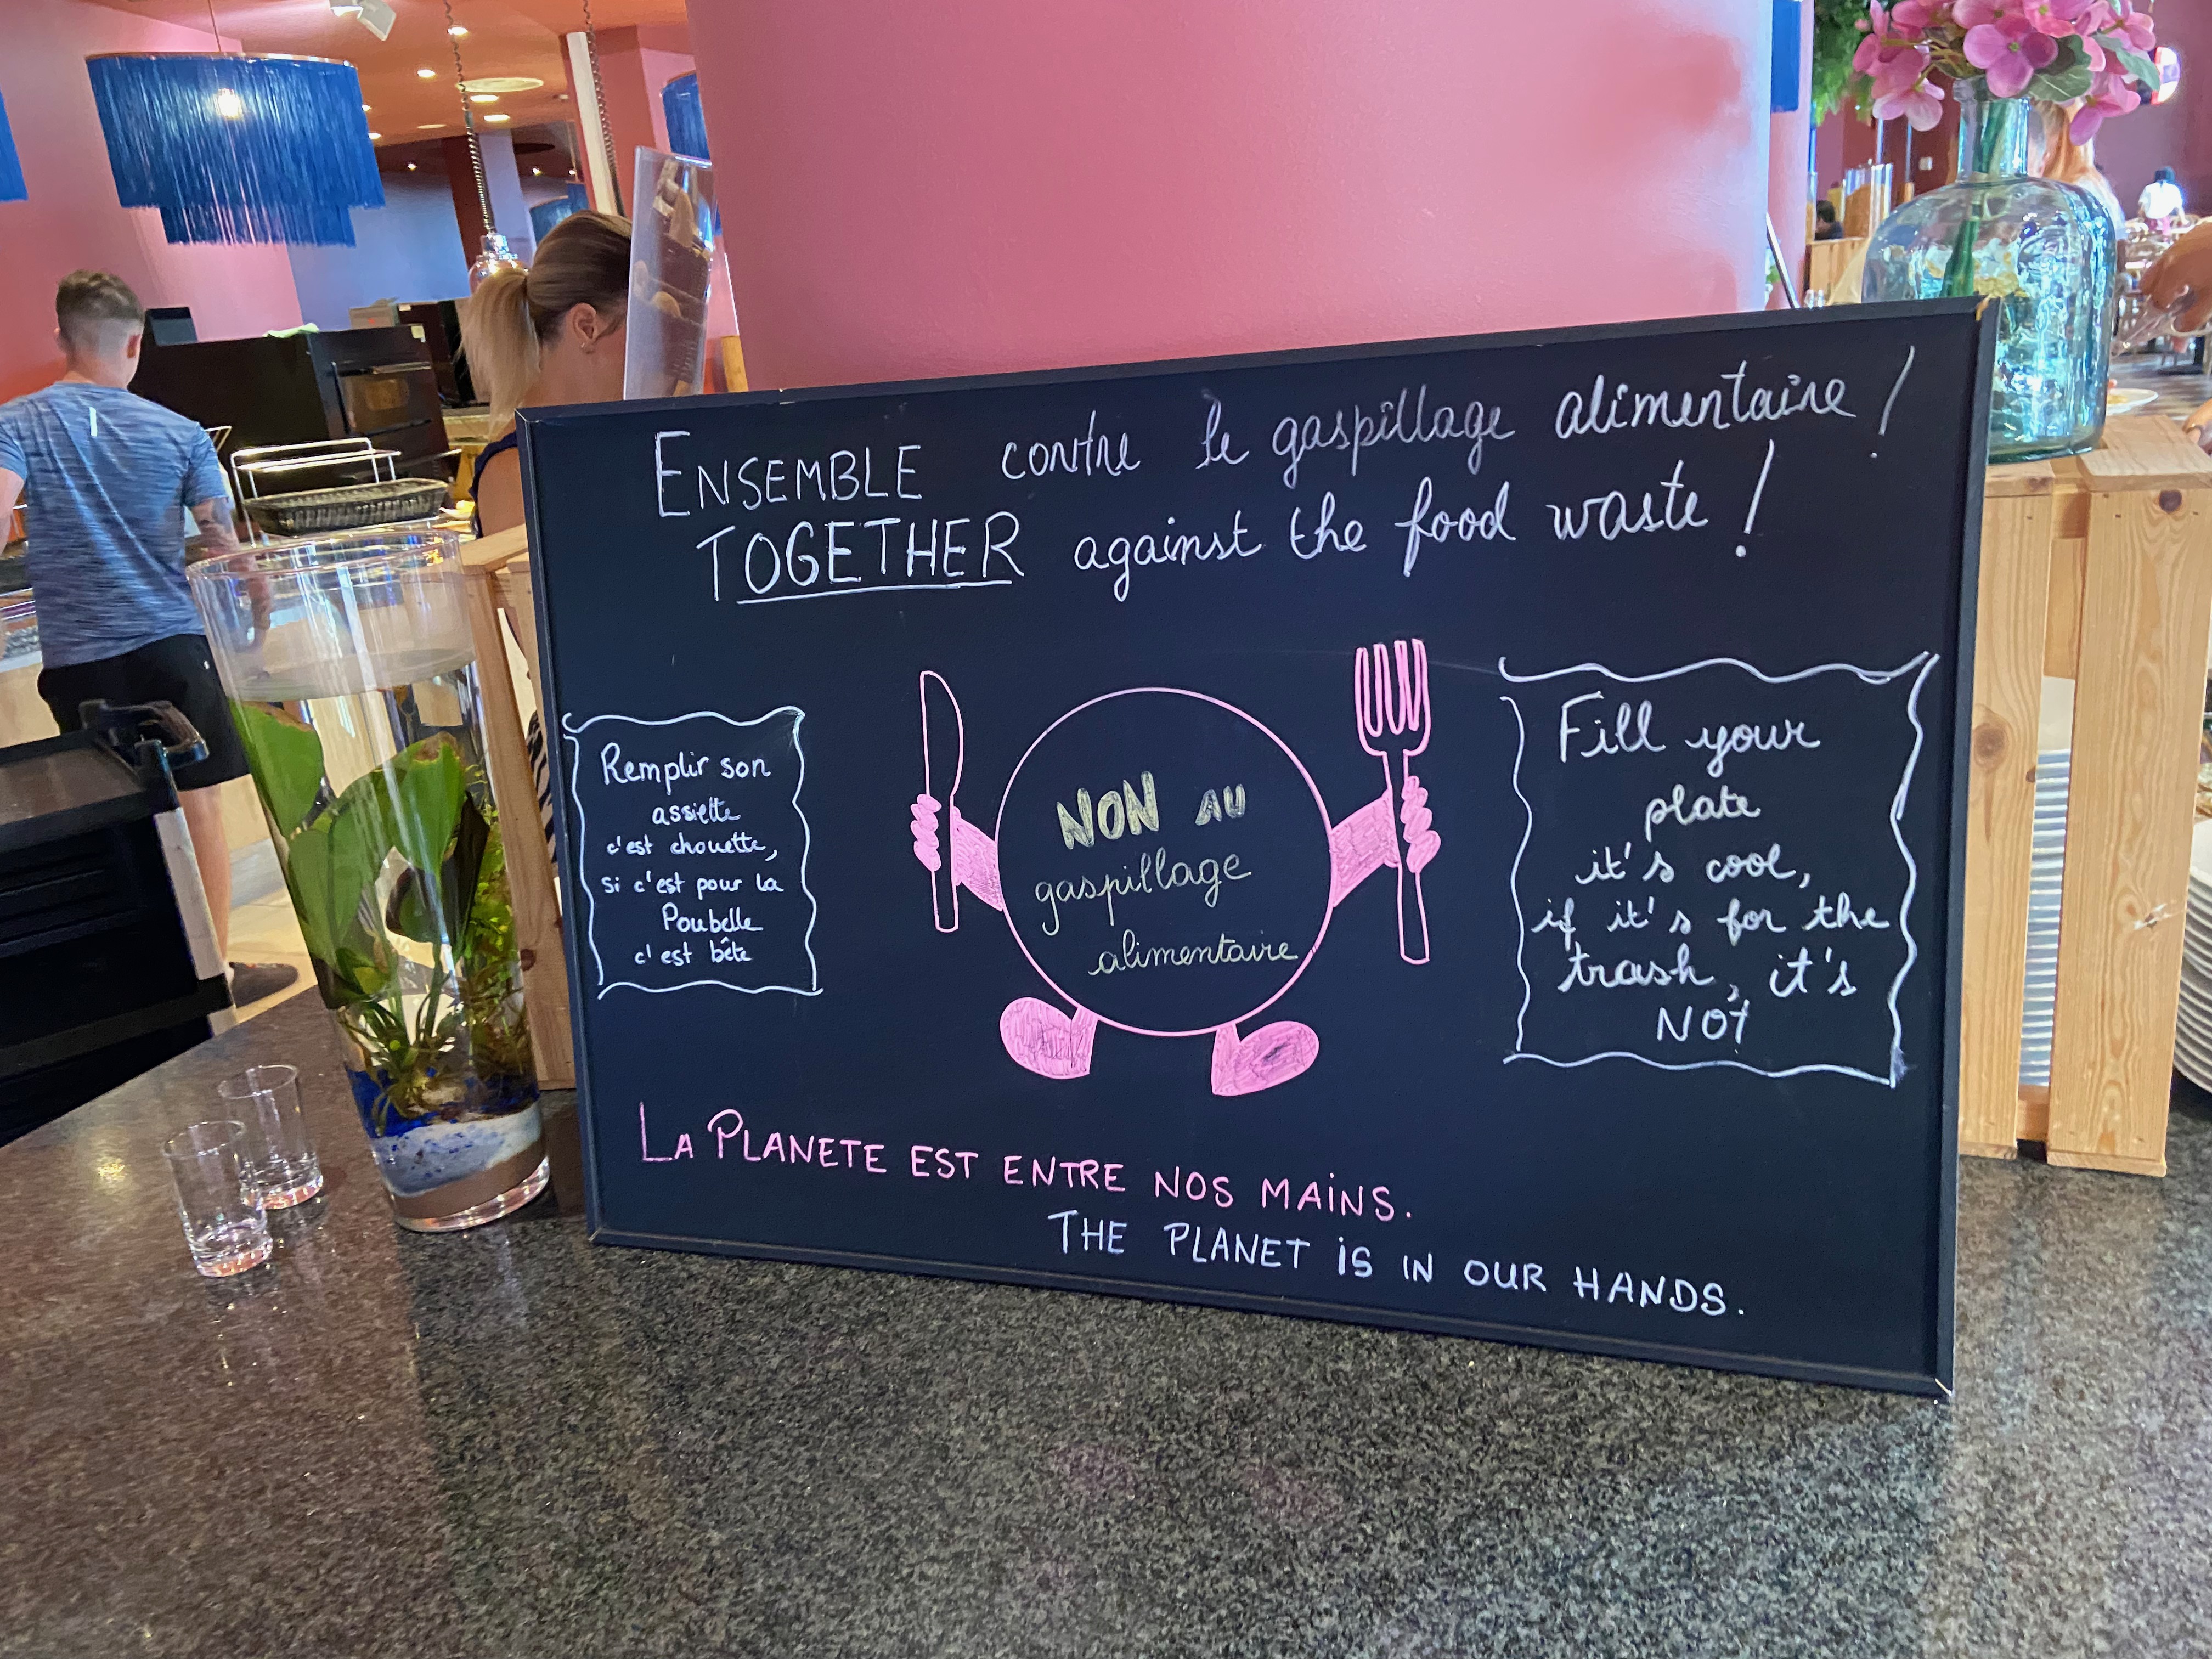 ENSEMBLE contre le gaspillage alimentaire !
TOGETHER against the food waste !
Remplir son
assiette
c'est chouette,
si c'est pour la
Poubelle
c'est bête
NON AU
gaspillage
alimentaire
Fill your
plate
it's cool,
if it's for the
trash, it's
NOT
LA PLANETE EST ENTRE NOS MAINS.
THE PLANET IS IN OUR HANDS.